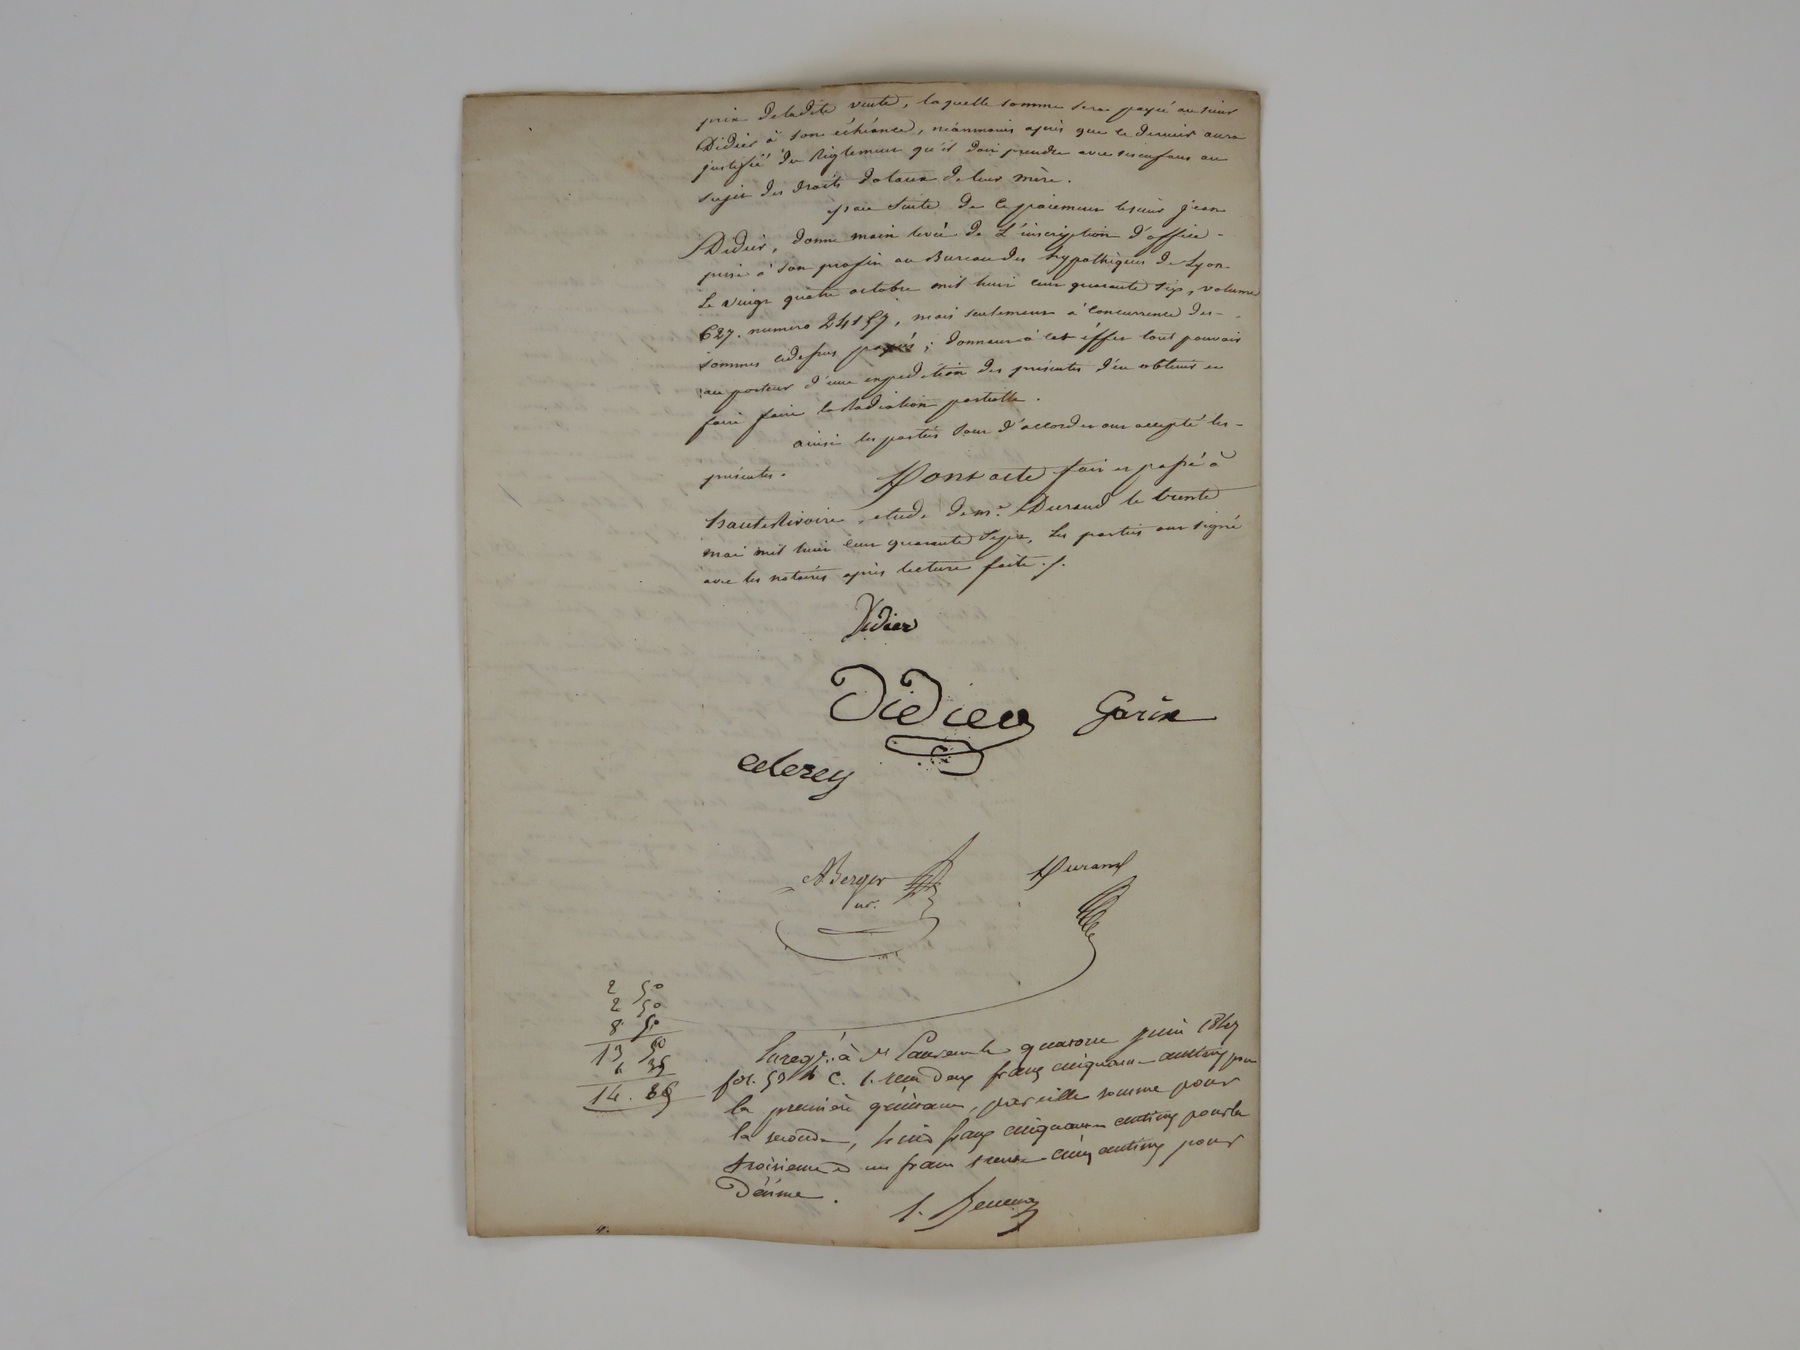 prix de ladite vente, laquelle somme sera payée au sieur
Didier à son échéance, néanmoins après que ce dernier aura
justifié du Règlement qu'il doit prendre avec ses enfans au
sujet des droits dotaux de leur mère.
Par suite de ce paiement le sieur Jean
Didier, donne main levée de L'inscription d'office -
prise à son profit au Bureau des hypothèques de Lyon
Le vingt quatre octobre mil huit cent quarante six, volume
627. numéro 24157, mais seulement à concurrence des -
sommes cidessus payées ; donnant à cet éffet tout pouvoir
au porteur d'une expédition des présentes d'en obtenir et
faire faire la Radiation partielle.
ainsi les parties sont d'accord et ont accepté les -
présentes.
Dont acte fait et passé à
haute Rivoire, etude de me. Durand le trente
mai mil huit cent quarante Sept, Les parties ont signé
avec les notaires après lecture faite ./.
Didier
Didier Garin
celerey
ABerger
nre.
Durand
2 50
2 50
8 50
13 50
1 35
14. 85
Enregé. à St Laurent le quatorze Juin 1847
fol. 59 c. 1. reçu deux francs cinquante centimes pour
la première quittance, pareille somme pour
la seconde, huit francs cinquante centimes pour la
troisieme et un franc trente cinq centimes pour
Décime.